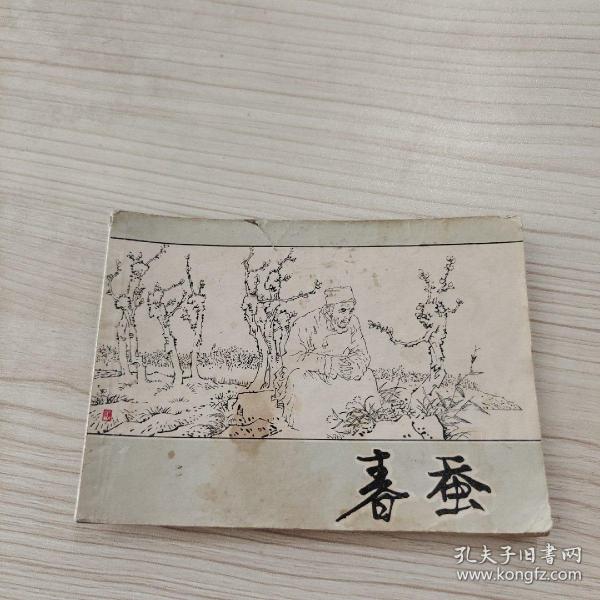 春蚕
孔夫子旧書网
www.kongfz.com